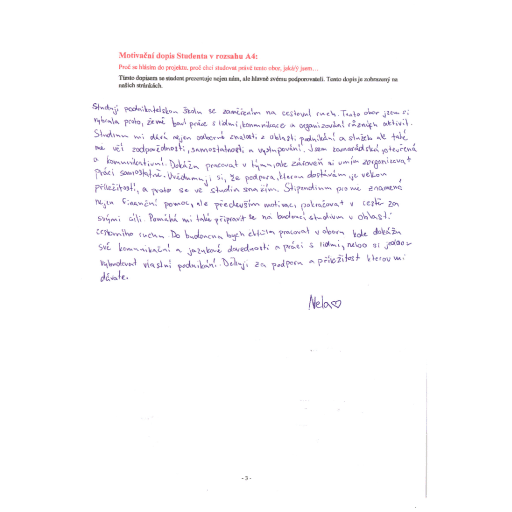 Motivační dopis Studenta v rozsahu A4:
Proč se hlásím do projektu, proč chci studovat právě tento obor, jaký/á jsem…
Tímto dopisem se student prezentuje nejen nám, ale hlavně svému podporovateli. Tento dopis je zobrazený na
našich stránkách.
Studuji podnikatelskou školu se zaměřením na cestovní ruch. Tento obor jsem si
vybrala proto, že mě baví práce s lidmi, komunikace a organizování různých aktivit.
Studium mi dává nejen odborné znalosti z oblasti podnikání a služeb ale také
me učí zodpovědnosti, samostatnosti, a vystupování. Jsem kamarádská, otevřená
a komunikativní. Dokážu pracovat v týmu, ale zároveň si umím zorganizovat
práci samostatně. Uvědomuji si, že podpora, kterou dostávám, je velkou
příležitostí, a proto se ve studiu snažím. Stipendium pro me znamená
nejen finanční pomoc, ale především motivaci pokračovat v cestě za
svými cíli. Pomáhá mi také připravit se na budoucí studium v oblasti
cestovního ruchu. Do budoucna bych chtěla pracovat v oboru kde dokážu
své komunikační a jazykové dovednosti a práci s lidmi, nebo si jednou
vybudovat vlastní podnikání. Děkuji za podporu a příležitost kterou mi
dáváte.
Nela♡
- 3 -